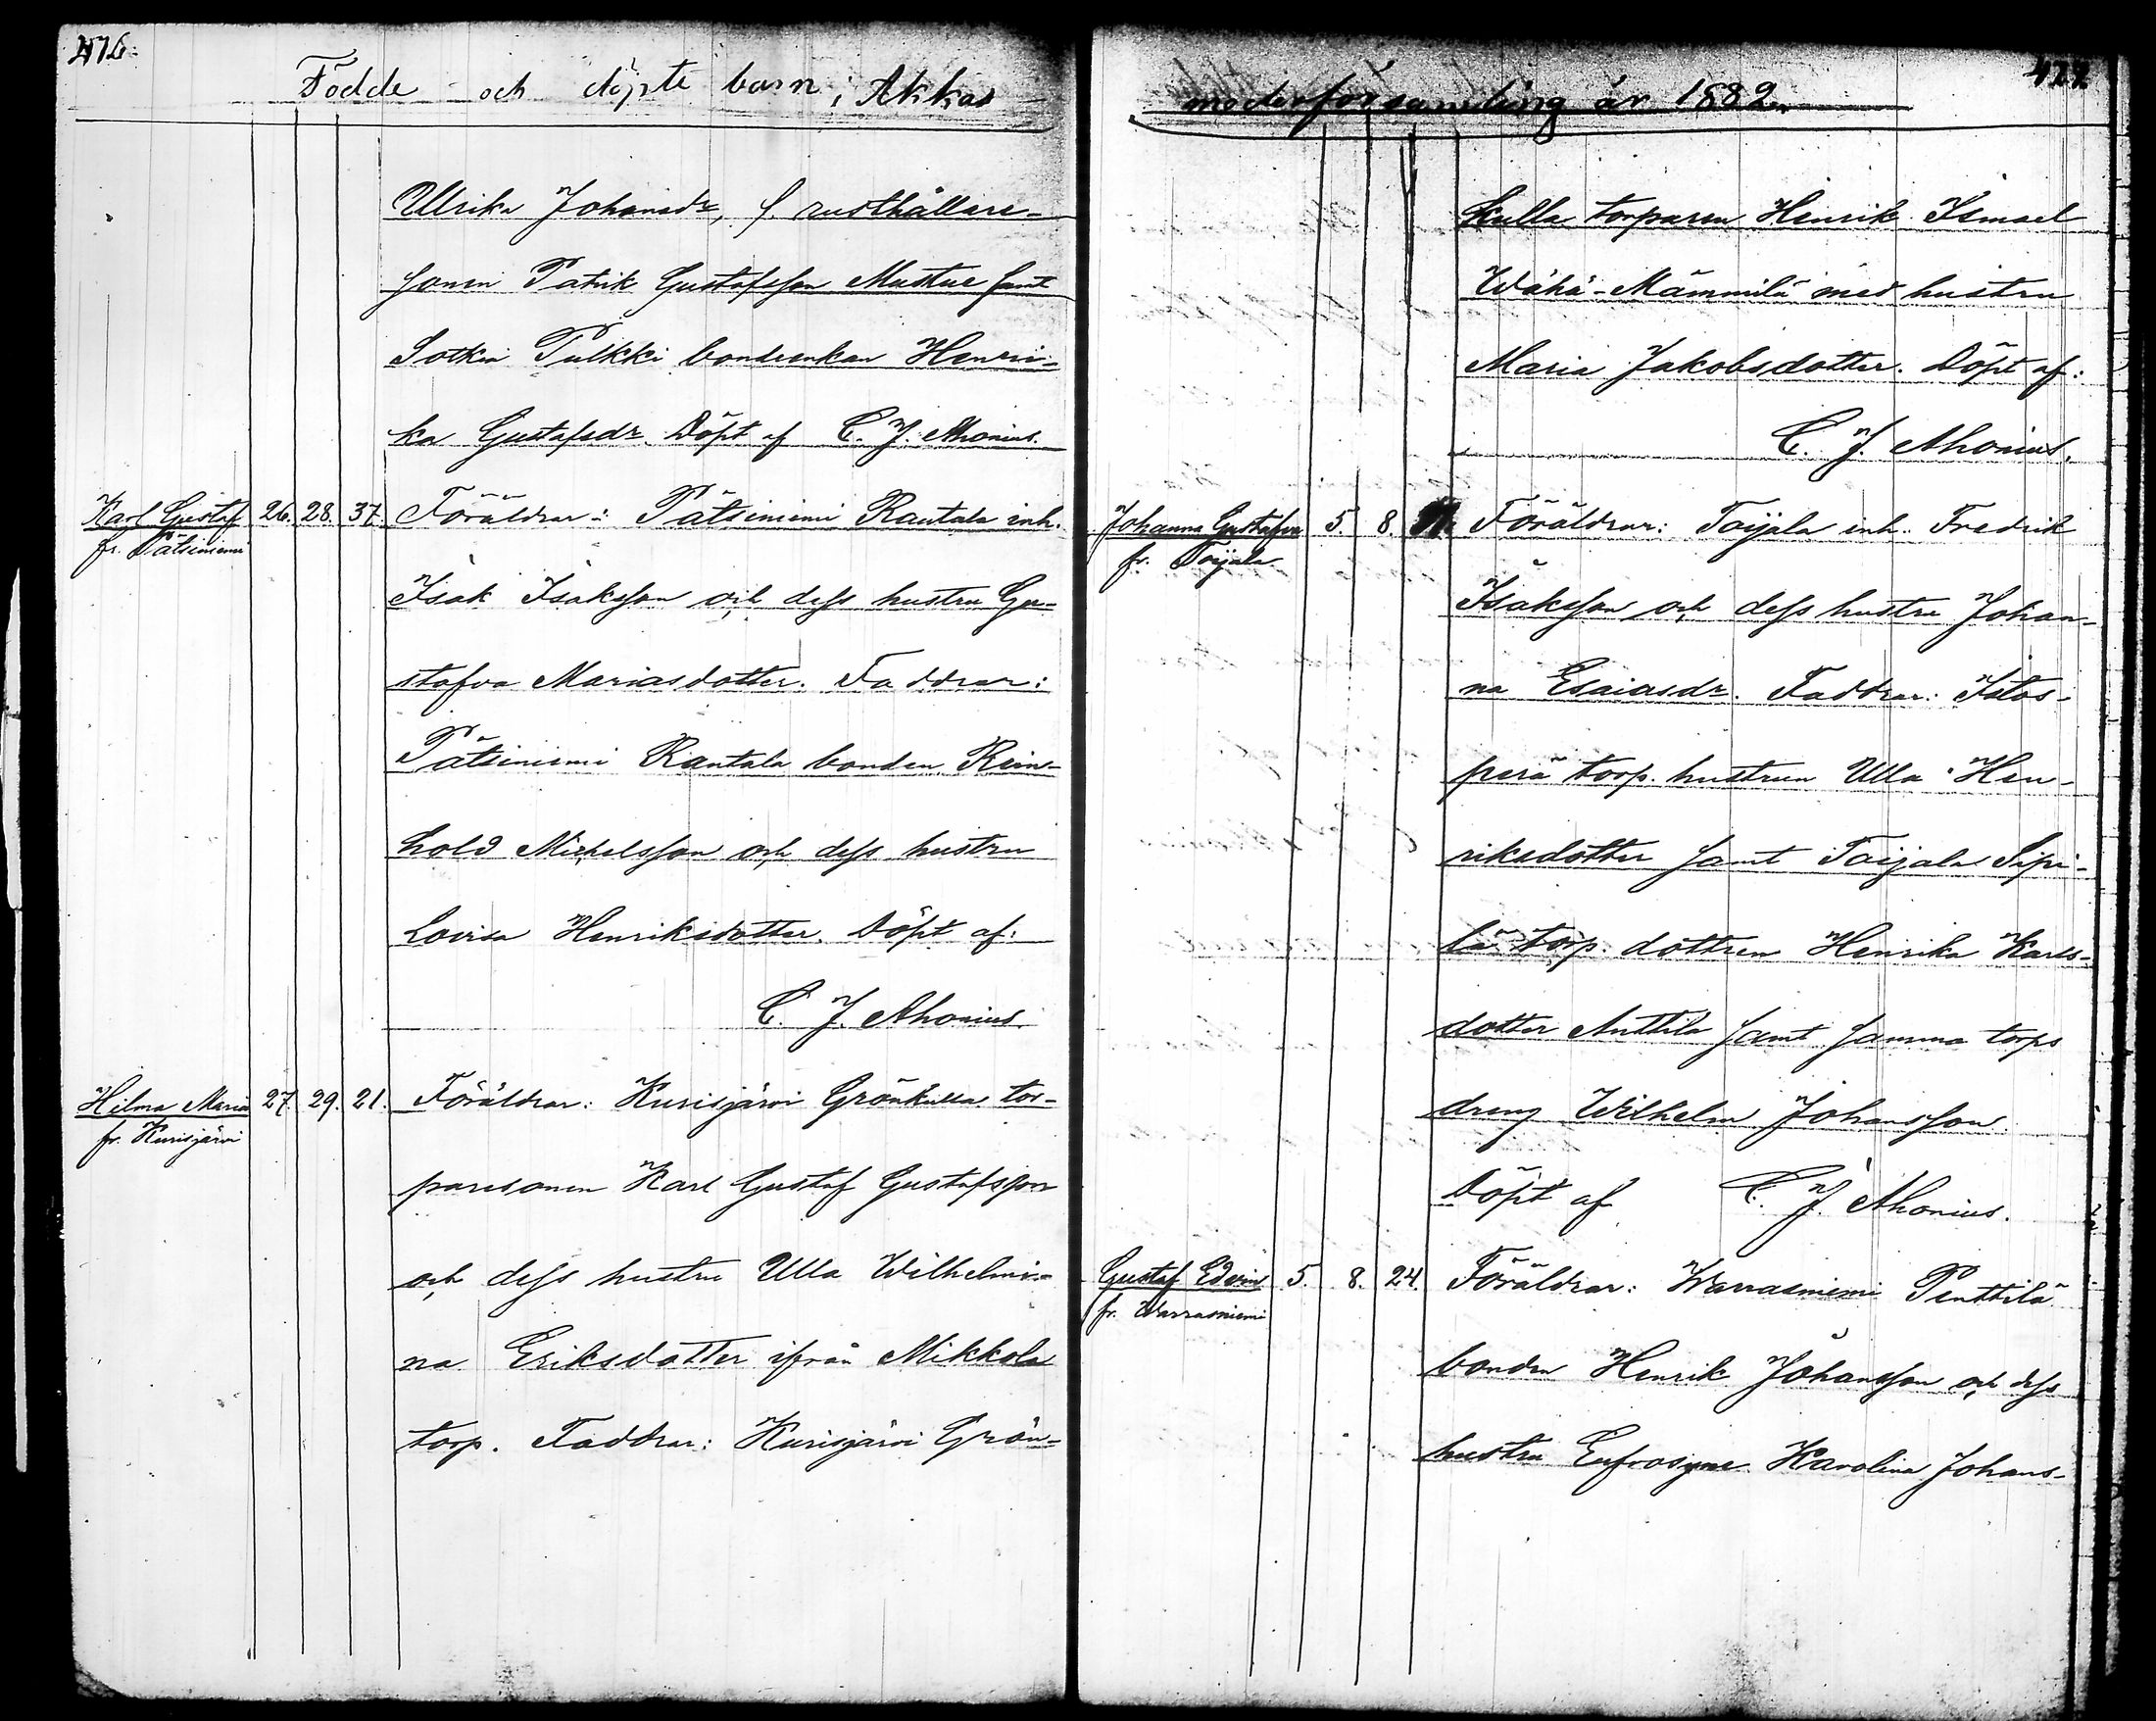 476.
Födde och döpte barn i Akkas
Ulrika Johansdr, f. rusthållare-
sonen Patrik Gustafsson Mustue samt
Sotkia Pulkki bondeenkan Henri-
ka Gustafsdr. Döpt af C. J. Ahonius.
Karl Gustaf 26. 28. 37. Föräldrar: Pätsiniemi Rautala inh.
fr. Pätsiniemi
Isak Isaksson och dess hustru Gu-
stafva Mariasdotter. Faddrar:
Pätsiniemi Rautala bonden Rein-
hold Mickelsson och dess hustru
Lovisa Henriksdotter. Döpt af:
C. J. Ahonius.
Hilma Maria 27. 29. 21. Föräldrar: Kurisjärvi Grönkulla tor-
fr. Kurisjärvi
paresonen Karl Gustaf Gustafsson
och dess hustru Ulla Wilhelmi-
na Eriksdotter ifrån Mikkola
torp. Faddrar: Kurisjärvi Grön-
477.
moderförsamling år 1882.
kulla torparen Henrik Ismael
Wähä-Mämmilä med hustru
Maria Jakobsdotter. Döpt af:
C. J. Ahonius.
Johanna Gustafva 5. 8. Föräldrar: Toijala inh. Fredrik
fr. Toijala
Isaksson och dess hustru Johan-
na Esaiasdr. Faddrar: Itos-
perä torp. hustrun Ulla Hen-
riksdotter samt Toijala Sipi-
lä torp. dottren Henrika Karls-
dotter Anttila samt samma torps
dreng Wilhelm Johansson.
Döpt af C. J. Ahonius.
Gustaf Edvin 5. 8. 24. Föräldrar: Warrasniemi Penttilä
fr. Warrasniemi
bonden Henrik Johansson och dess
hustru Eufrosyne Karolina Johans-